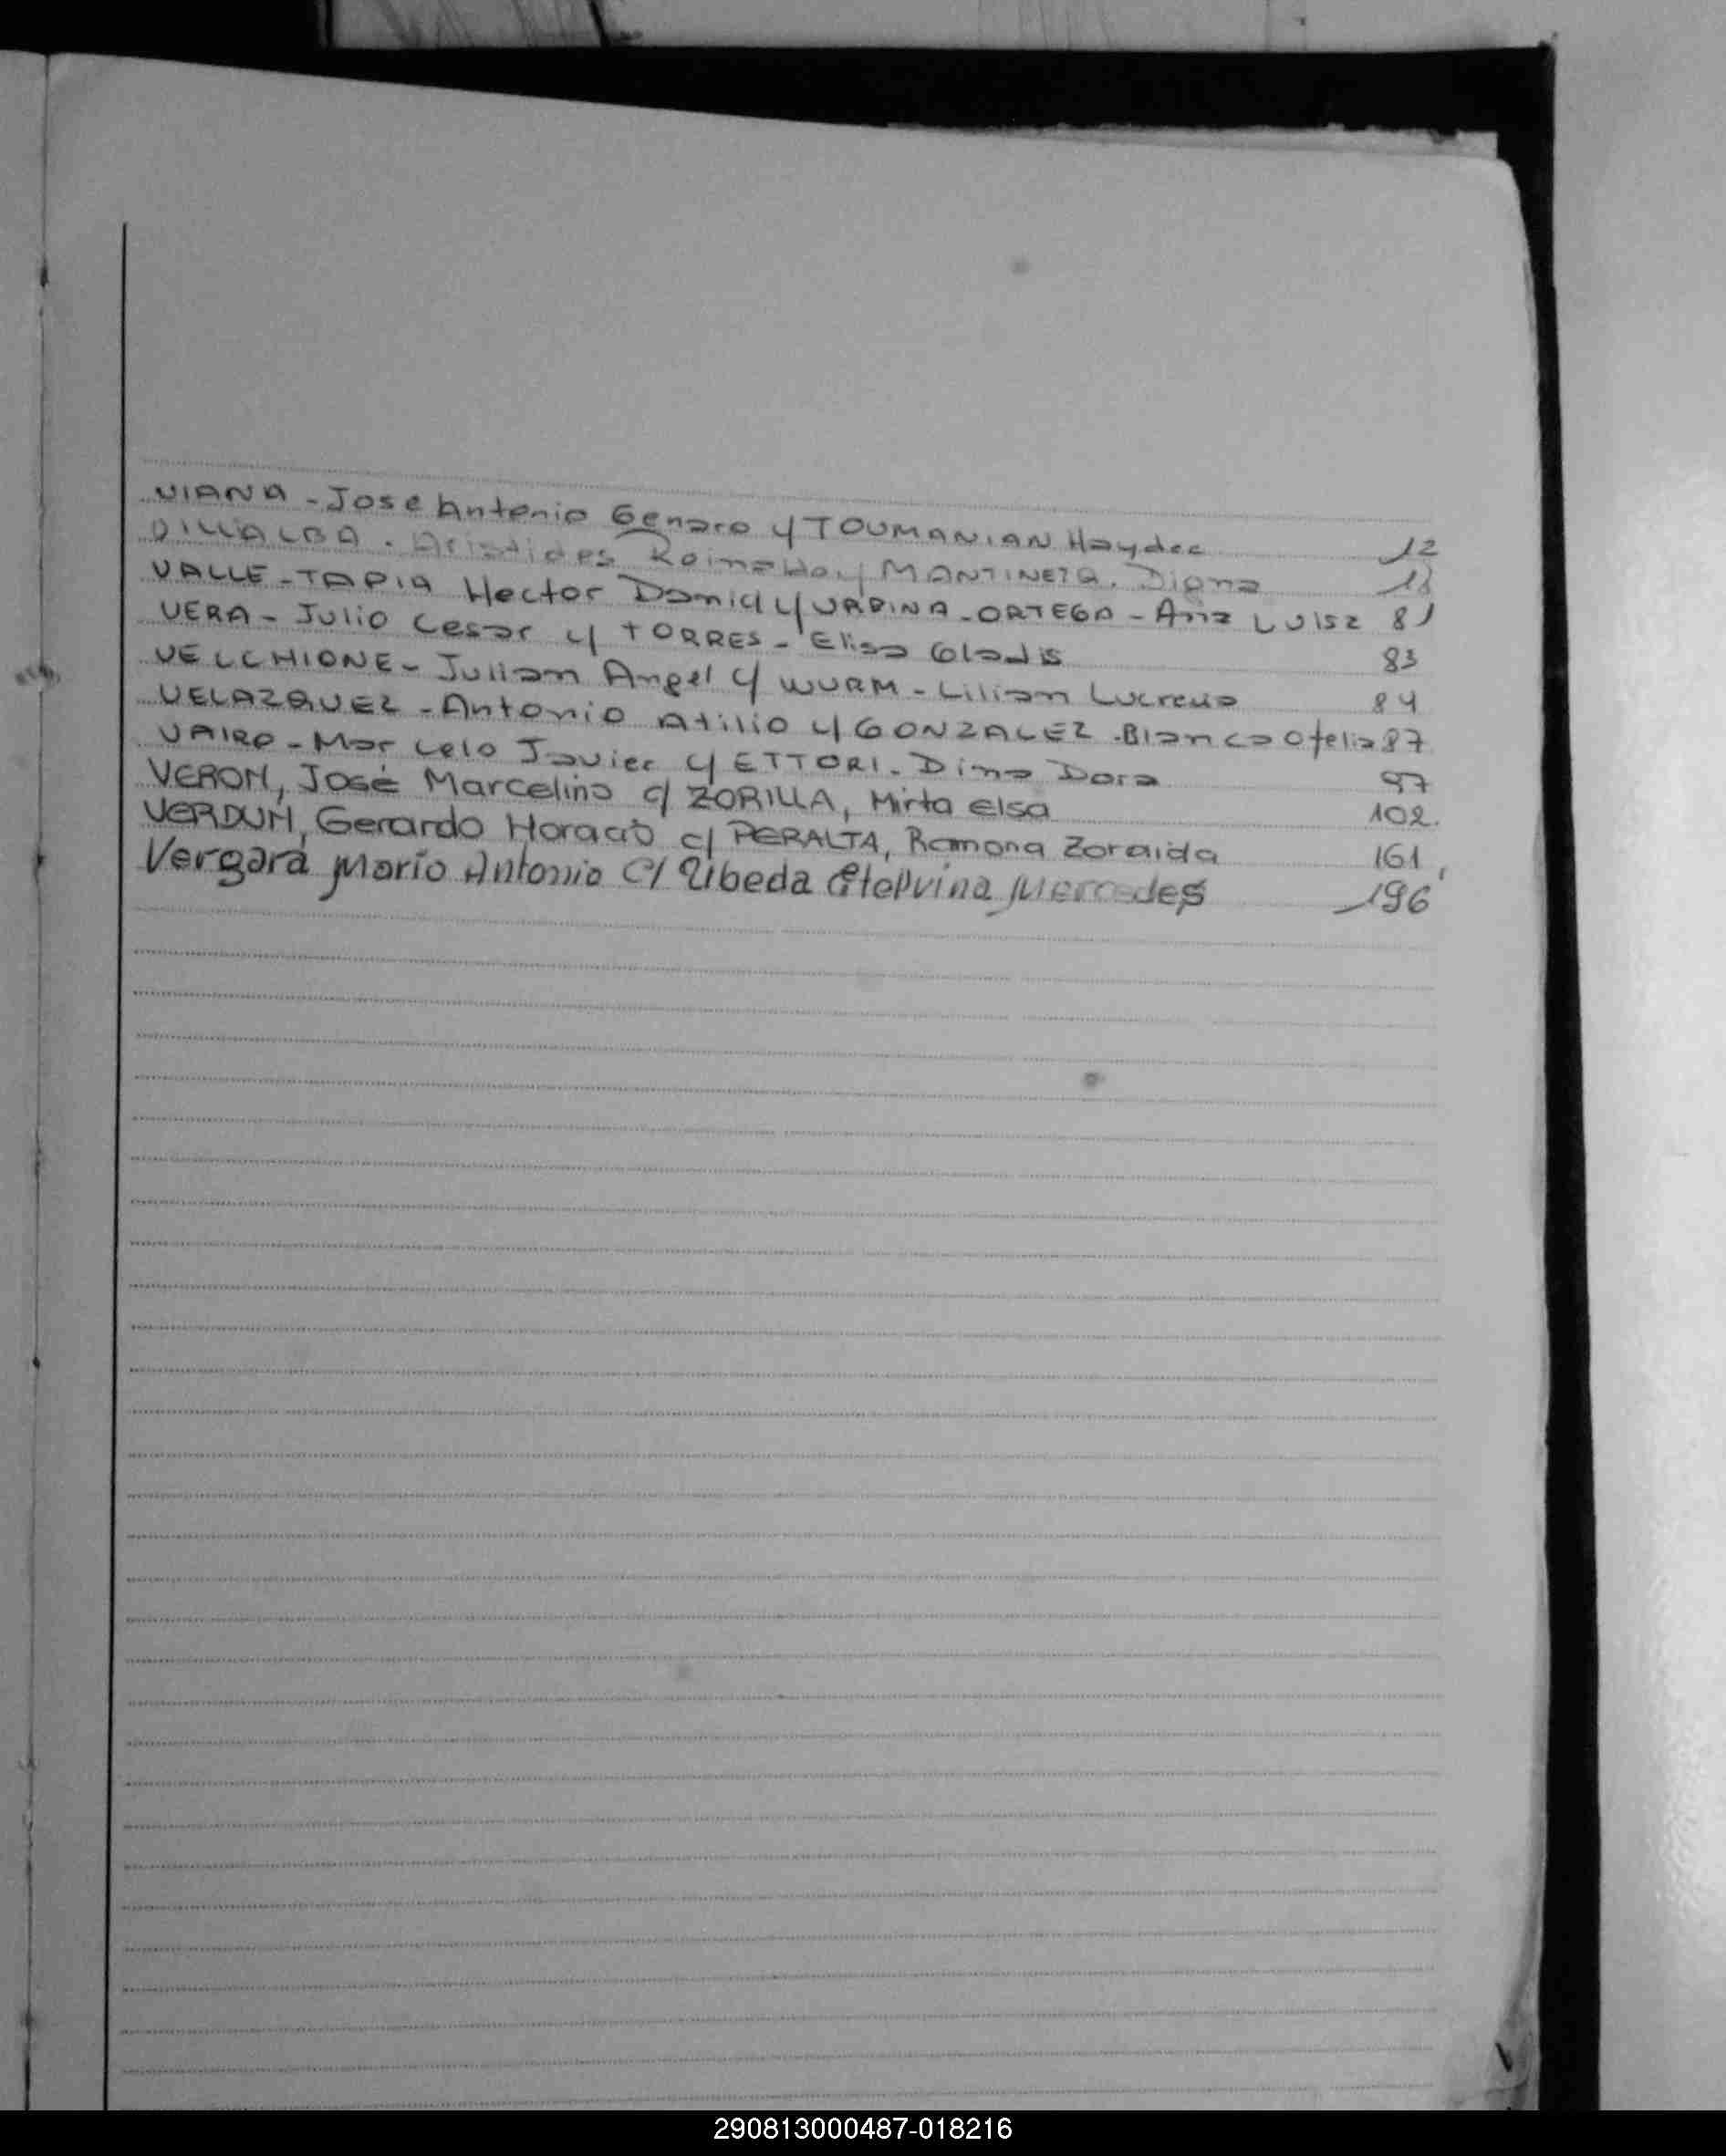 VIANA - Jose Antonio Genaro y TOUMANIAN Haydee 12
VILLALBA - Aristides Roimaldo y Digna 18
VALLE - TAPIA Hector Daniel y URBINA - ORTEGA - Ana Luisa 81
VERA - Julio Cesar y TORRES - Elisa Gladis 83
VELCHIONE - Julian Angel y WURM - Lilian Lucrecia 84
VELAZQUEZ - Antonio Atilio y GONZALEZ - Blanca Ofelia 87
VAIRO - Marcelo Javier y ETTORI - Dina Dora 97
VERON, José Marcelino c/ ZORILLA, Mirta elsa 102.
VERDUN, Gerardo Horacio c/ PERALTA, Ramona Zoraida 161
Vergara Mario Antonio C/ Ubeda Etelvina Mercedes 196
290813000487-018216